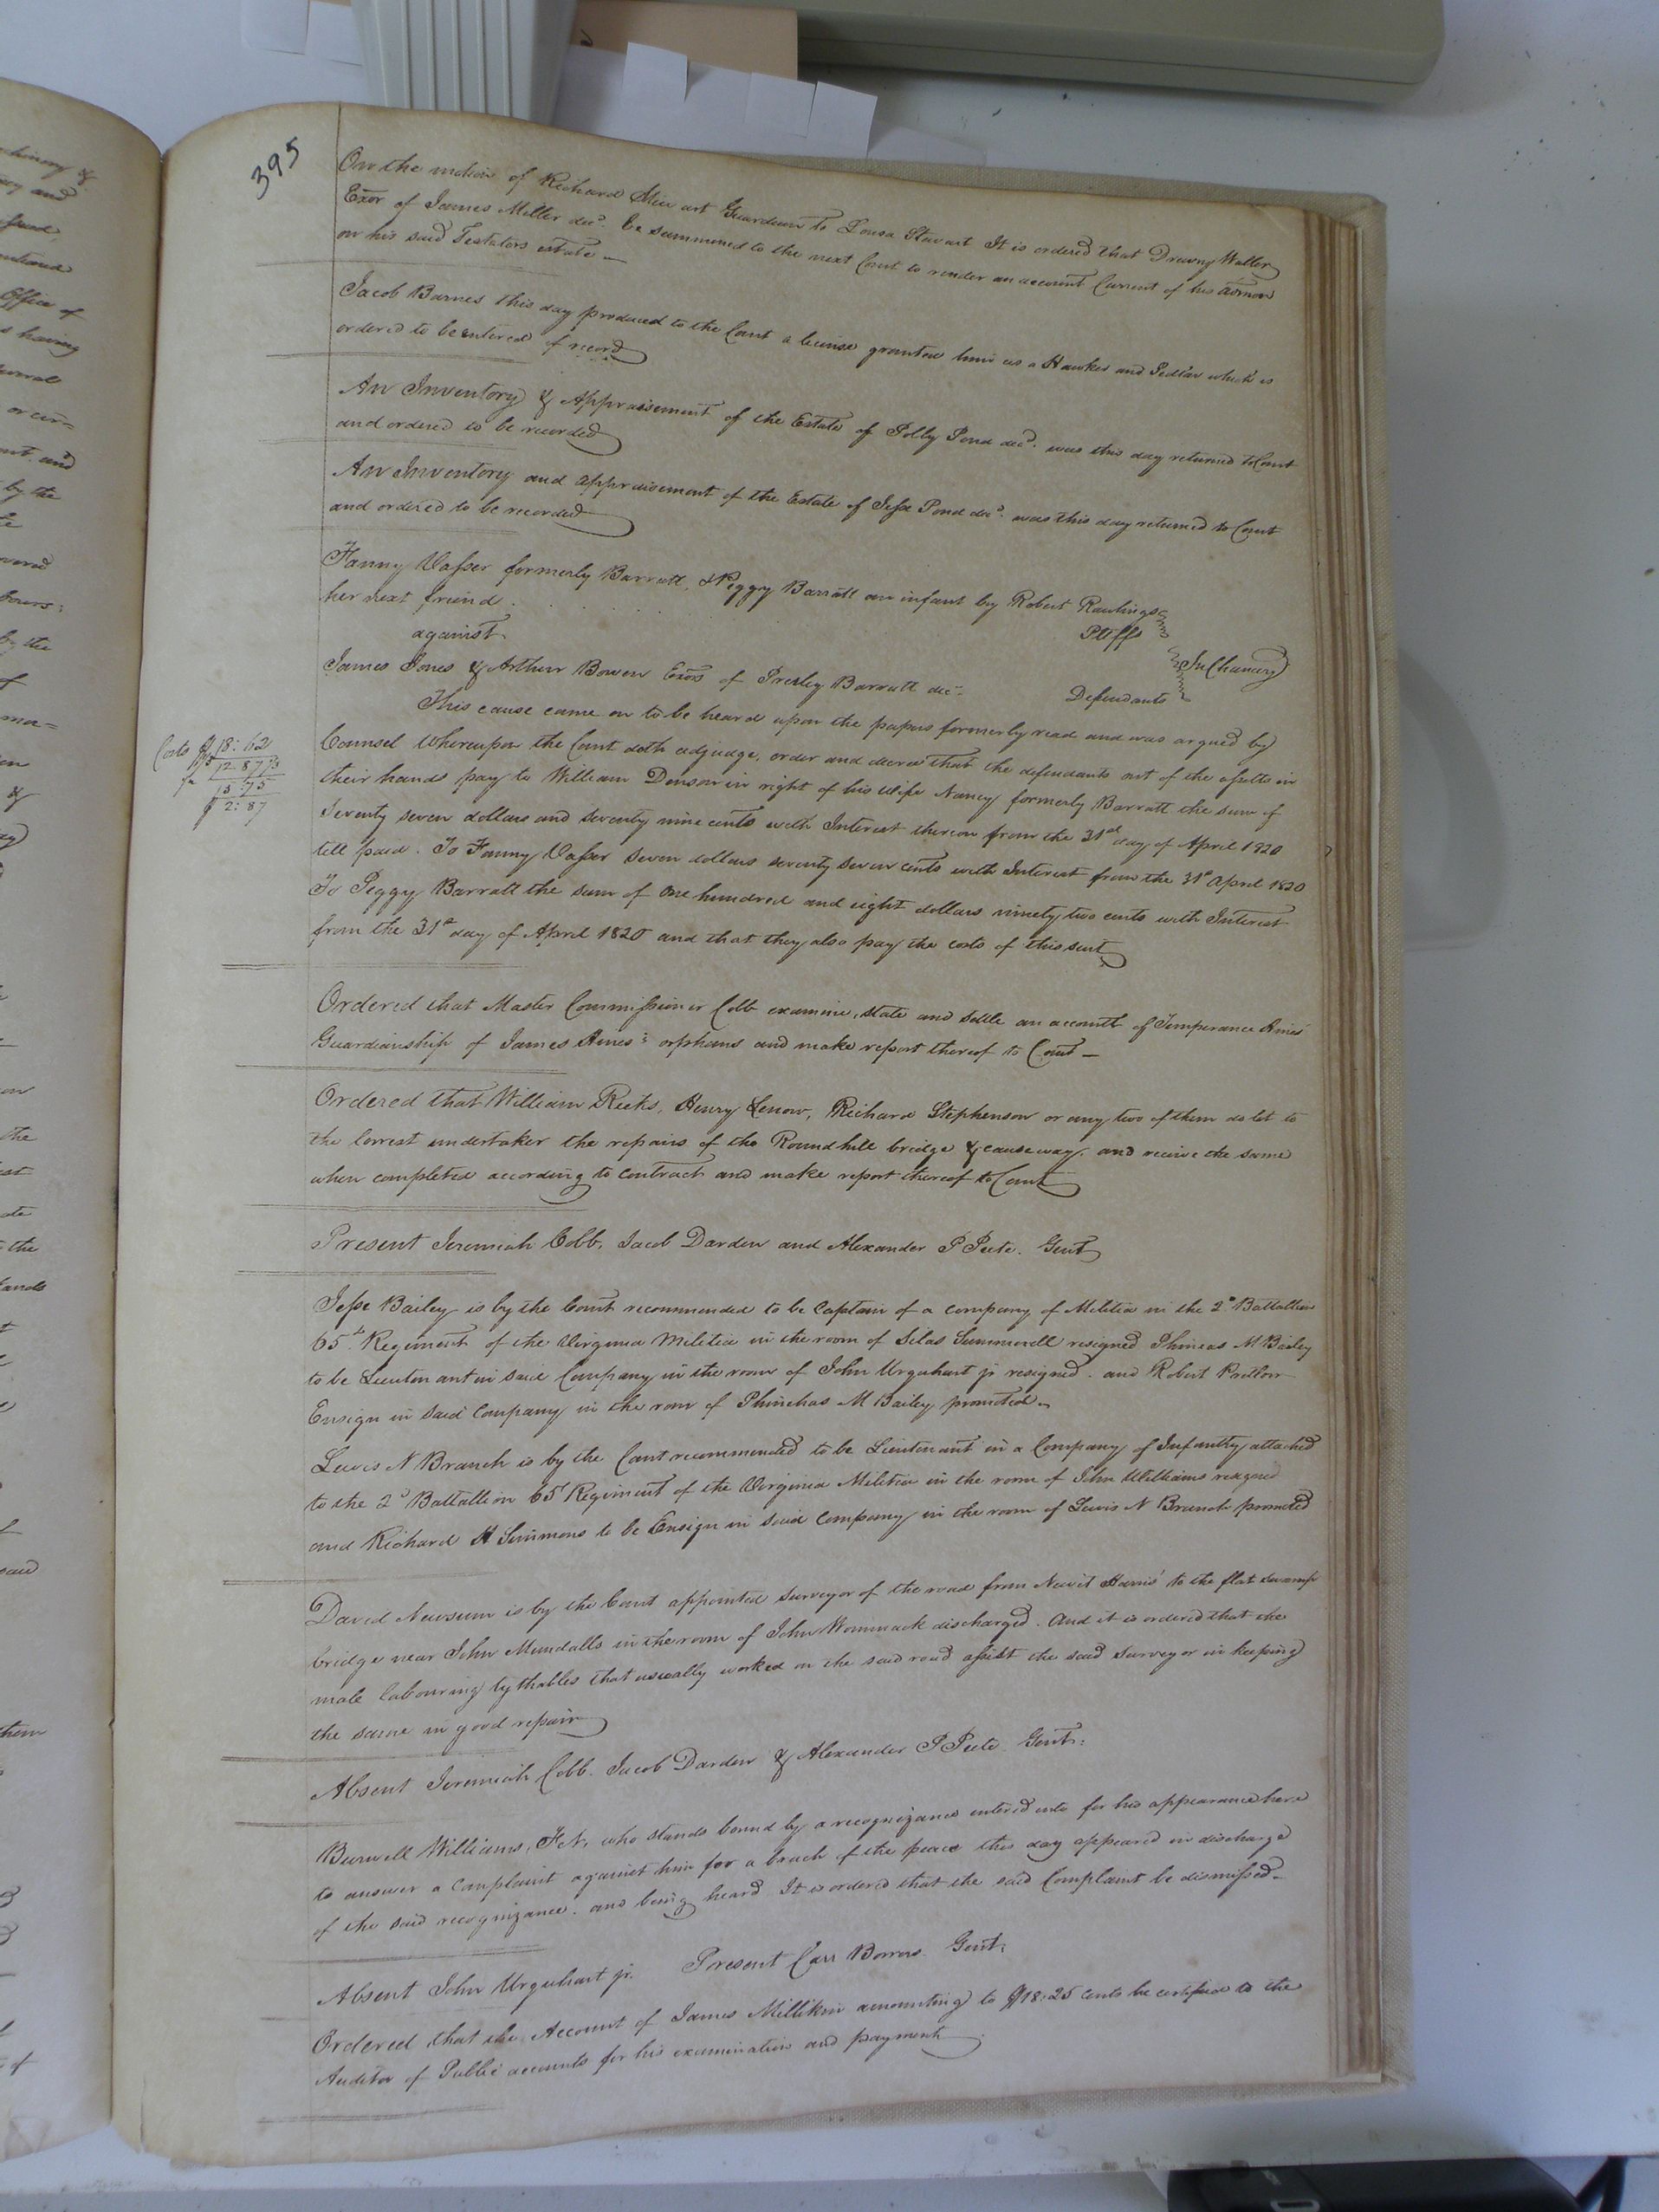 395
On the motion of Richard Stewart Guardian to Louisa Stewart It is ordered that Drewry Waller
Exor of James Miller decd. be summoned to the next Court to render an account Current of his admon
on his said Testators estate —
Jacob Barnes this day produced to the Court a license granted him as a Hawker and Pedlar which is
ordered to be entered of record
An Inventory & Appraisement of the Estate of Polly Pond decd. was this day returned to Court
and ordered to be recorded
An Inventory and appraisement of the Estate of Jesse Pond decd. was this day returned to Court
and ordered to be recorded
Fanny Vasser formerly Barratt, & Peggy Barratt an infant by Robert Rawlings
her next friend. Pltffs
against
In Chancery
James Jones & Arthur Bowen Exors of Presley Barratt decd. Defendants
This cause came on to be heard upon the papers formerly read and was argued by
Costs $18:62
12.87
15.75
$2:87
Counsel Whereupon the Court doth adjudge, order and decree that the defendants out of the assetts in
their hands pay to William Denson in right of his wife Nancy formerly Barratt the sum of
Seventy seven dollars and seventy nine cents with Interest thereon from the 31st day of April 1820
till paid. To Fanny Vasser seven dollars seventy seven cents with Interest from the 31st April 1820
To Peggy Barratt the sum of One hundred and eight dollars ninety two cents with Interest
from the 31st day of April 1820 and that they also pay the costs of this suit
Ordered that Master Commissioner Cobb examine, state and settle an account of Temperance Ames'
Guardianship of James Ames' orphans and make report thereof to Court —
Ordered that William Ricks, Henry Lenow, Richard Stephenson or any two of them do let to
the lowest undertaker the repairs of the Roundhill bridge & causeway, and receive the same
when completed according to contract and make report thereof to Court
Present Jeremiah Cobb, Jacob Darden and Alexander P Peete. Gent
Jesse Bailey is by the Court recommended to be Captain of a company of Militia in the 2d Battallion
65th. Regiment of the Virginia Militia in the room of Silas Summerell resigned Phineas M Bailey
to be Lieutenant in said Company in the room of John Urquhart jr resigned. and Robert Pretlow
Ensign in said Company in the room of Phinehas M Bailey promoted.
Lewis N Branch is by the Court recommended to be Lieutenant in a Company of Infantry attached
to the 2d Battallion 65t Regiment of the Virginia Militia in the room of John Williams resigned
and Richard H Simmons to be Ensign in said Company in the room of Lewis N Branch promoted
David Newsum is by the Court appointed Surveyor of the road from Newit Harris' to the flat swamp
bridge near John Mundalls in the room of John Wommack discharged. And it is ordered that the
male labouring tythables that usually worked on the said road assist the said Surveyor in keeping
the same in good repair
Absent Jeremiah Cobb. Jacob Darden & Alexander P Peete Gent:
Burwell Williams, F.N, who stands bound by a recognizance entered into for his appearance here
to answer a complaint against him for a breach of the peace this day appeared in discharge
of the said recognizance. and being heard It is ordered that the said Complaint be dismissed.
Absent John Urquhart jr. Present Carr Bowers Gent:
Ordered that the Account of James Millikin amounting to $18.25 cents be certified to the
Auditor of Public accounts for his examination and payment